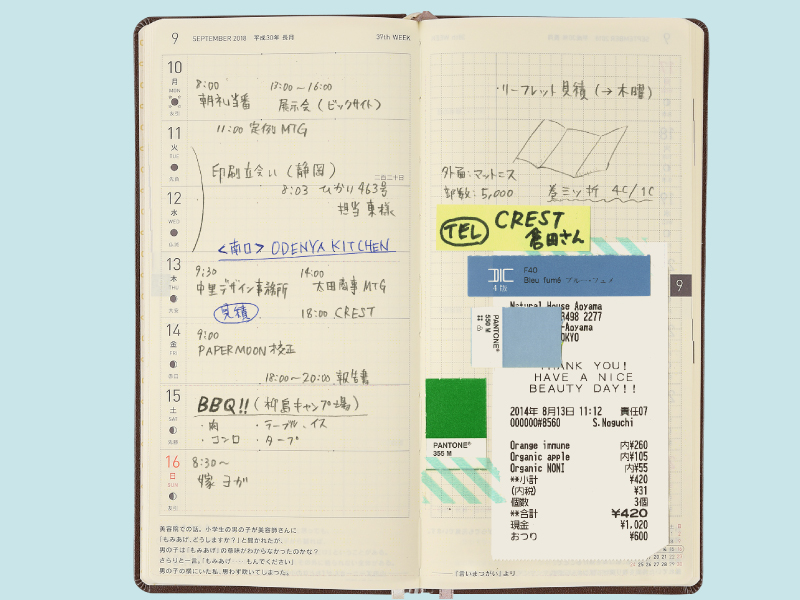 9 SEPTEMBER 2018 平成30年 長月 37th WEEK
10
月
MON
友引
8:00 13:00~16:00
朝礼当番 展示会(ビックサイト)
11
火
TUE
先負
11:00 定例MTG
印刷立会い(静岡)
二百二十日
8:03 ひかり463号
担当 東様
12
水
WED
仏滅
<南口> ODENYA KITCHEN
13
木
THU
大安
9:30 14:00
中里デザイン事務所 太田商事MTG
見積 18:00 CREST
14
金
FRI
赤口
9:00
PAPERMOON校正
18:00~20:00 報告書
15
土
SAT
先勝
BBQ!!(柳島キャンプ場)
・肉 ・テーブル、イス
・コンロ ・タープ
16
日
SUN
友引
8:30~
嫁 ヨガ
美容院での話。小学生の男の子が美容師さんに
「もみあげ、どうしますか?」と聞かれたが、
男の子は「もみあげ」の意味がわからなかったのかな?
さらりと一言。「もみあげ……もんでください」
男の子の横にいた私、思わず吹いてしまった。
・リーフレット見積(→木曜)
外面:マットニス
部数:5,000 巻三ツ折 4C/1C
TEL CREST
倉田さん
DIC
4版
F40
Bleu fumé ブルー・フュメ
9
Natural House Aoyama
3498 2277
-Aoyama
OKYO
PANTONE®
550 M
THANK YOU!
HAVE A NICE
BEAUTY DAY!!
2014年 8月13日 11:12 責任07
000000#8560 S.Noguchi
PANTONE®
355 M
Orange immune 内¥260
Organic apple 内¥105
Organic NONI 内¥55
**小計 ¥420
(内税) ¥31
個数 3個
**合計 ¥420
現金 ¥1,020
おつり ¥600
『言いまつがい』より